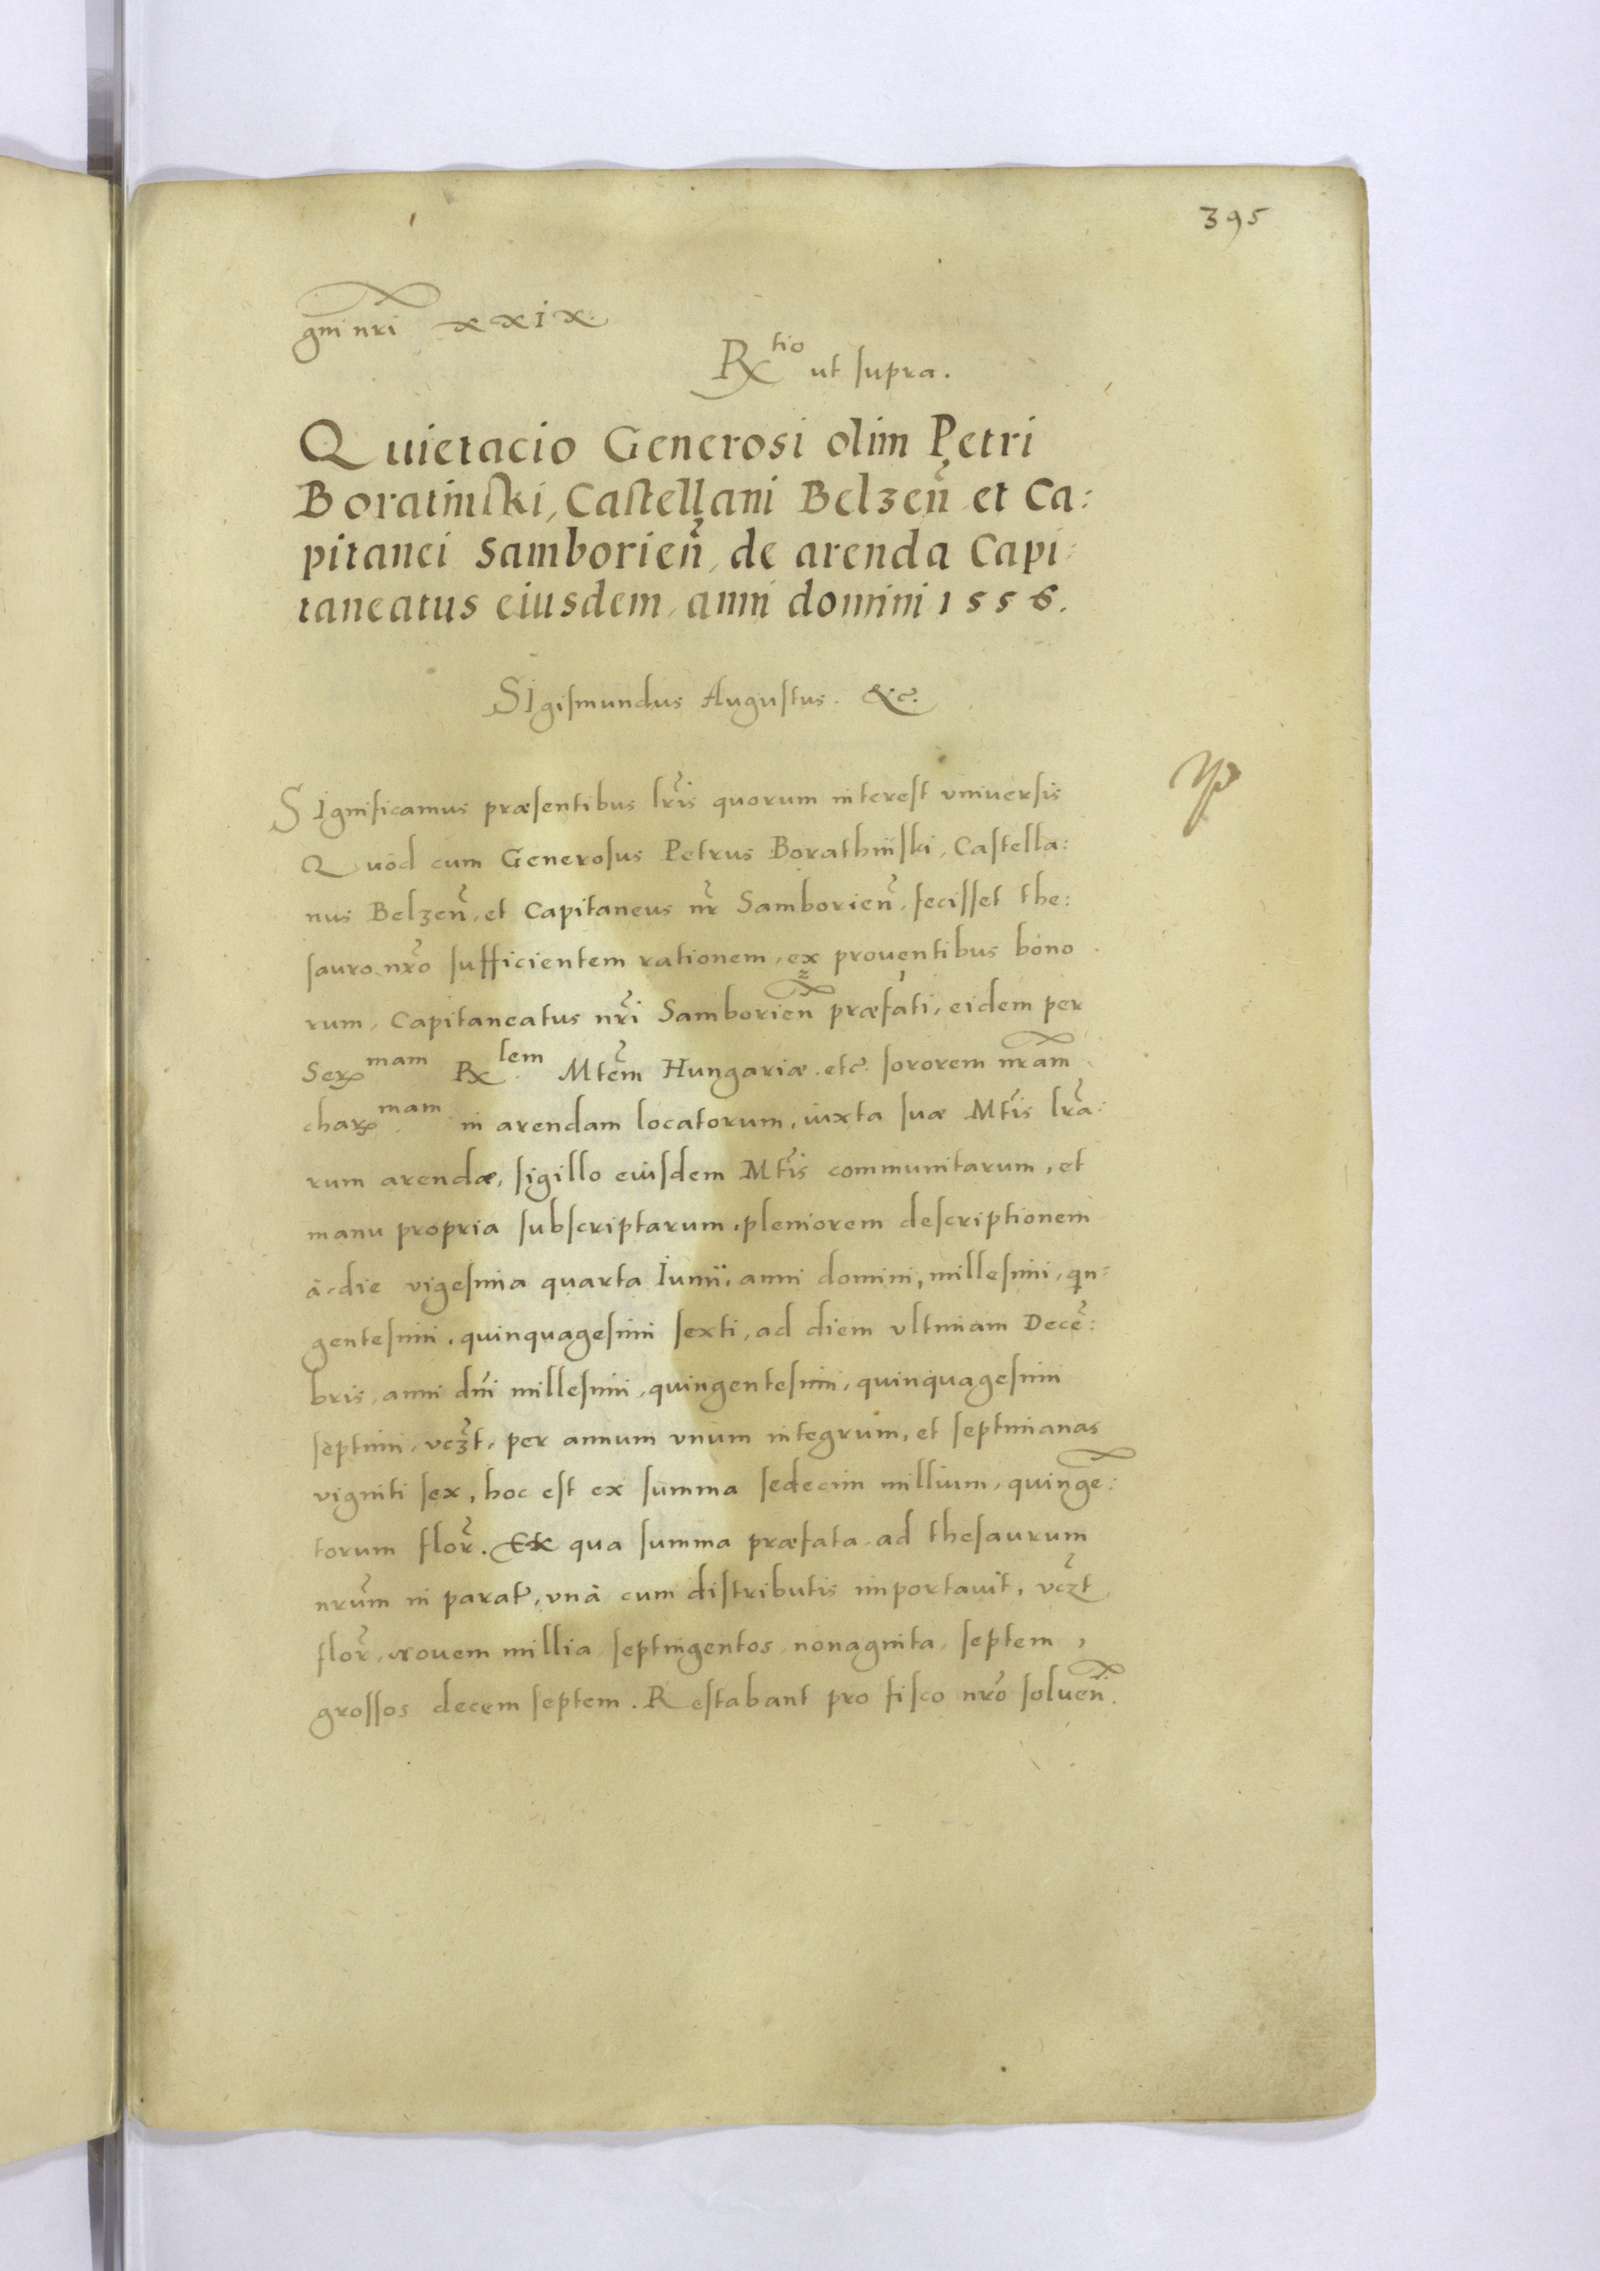 395
gni nri xxix.
Rx tio ut supra.
Quietacio Generosi olim Petri
Boratinski, Castellani Belzen̄ et Ca:
pitanei Samborien̄, de arenda Capi:
taneatus eiusdem, anni domini 1556.
Sigismundus Augustus. &c.
SIgnificamus præsentibus lris quorum interest vniuersis
Quòd cum Generosus Petrus Borathinski, Castella:
nus Belzen̄, et Capitaneus nr̄ Samborien̄, fecisset the:
sauro nrō sufficientem rationem, ex prouentibus bono
rum, Capitaneatus nrī Samborien̄ præfati, eidem per
Ser mam Rx lem Mtēm Hungariæ. etc. sororem nrām
char mam in arendam locatorum, iuxta suæ Mtīs lrā:
rum arendæ, sigillo eiusdem Mtīs communitarum, et
manu propria subscriptarum, pleniorem descriptionem
à die vigesima quarta Iunii, anni domini, millesimi, qin:
gentesimi, quinquagesimi sexti, ad diem vltimam Decē:
bris, anni dnī millesimi, quingentesimi, quinquagesimi
septimi, vcz̄t, per annum vnum integrum, et septimanas
viginti sex, hoc est ex summa sedecim millium, quingē:
torum flor̄. Ex qua summa præfata ad thesaurum
nrūm in parat, vnà cum distributis importauit, vcz̄t
flor̄, nouem millia septingentos nonaginta septem,
grossos decem septem. Restabant pro fisco nrō soluen̄.